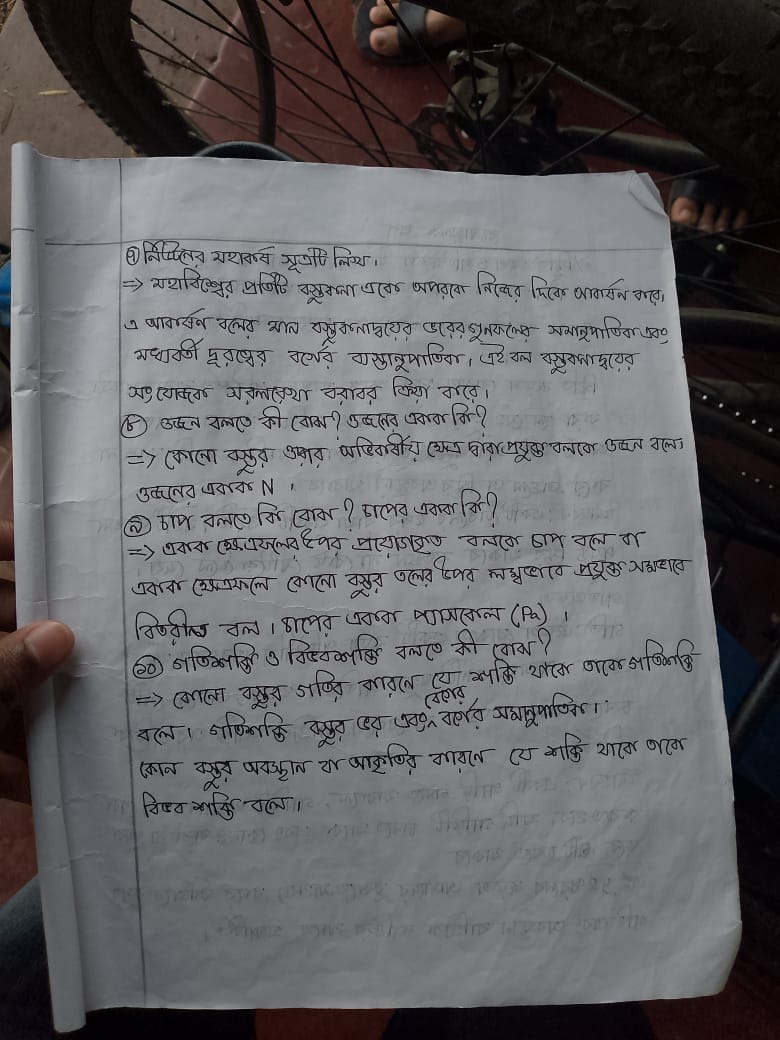 ৭) নিউটনের মহাকর্ষ সূত্রটি লিখ।
=> মহাবিশ্বের প্রতিটি বস্তুকনা একে অপরকে নিজের দিকে আকর্ষন করে,
এ আকর্ষন বলের মান বস্তুকনাদ্বয়ের ভরের গুনফলের সমানুপাতিক এবং
মধ্যবর্তী দূরত্বের বর্গের ব্যস্তানুপাতিক। এই বল বস্তুকনাদ্বয়ের
সংযোজক সরলরেখা বরাবর ক্রিয়া করে।
৮) ওজন বলতে কী বোঝ? ওজনের একক কি?
=> কোনো বস্তুর ওপর অভিকর্ষীয় ক্ষেত্র দ্বারা প্রযুক্ত বলকে ওজন বলে।
ওজনের একক N ।
৯) চাপ বলতে কি বোঝ? চাপের একক কি?
=> একক ক্ষেত্রফলের উপর প্রয়োগকৃত বলকে চাপ বলে বা
একক ক্ষেত্রফলে কোনো বস্তুর তলের উপর লম্বভাবে প্রযুক্ত সমভাবে
বিতরীত বল। চাপের একক প্যাসকেল (Pa) ।
১০) গতিশক্তি ও বিভবশক্তি বলতে কী বোঝ?
=> কোনো বস্তুর গতির কারনে যে শক্তি থাকে তাকে গতিশক্তি
বলে। গতিশক্তি বস্তুর ভর এবং বেগের বর্গের সমানুপাতিক।
কোন বস্তুর অবস্থান বা আকৃতির কারনে যে শক্তি থাকে তাকে
বিভব শক্তি বলে।